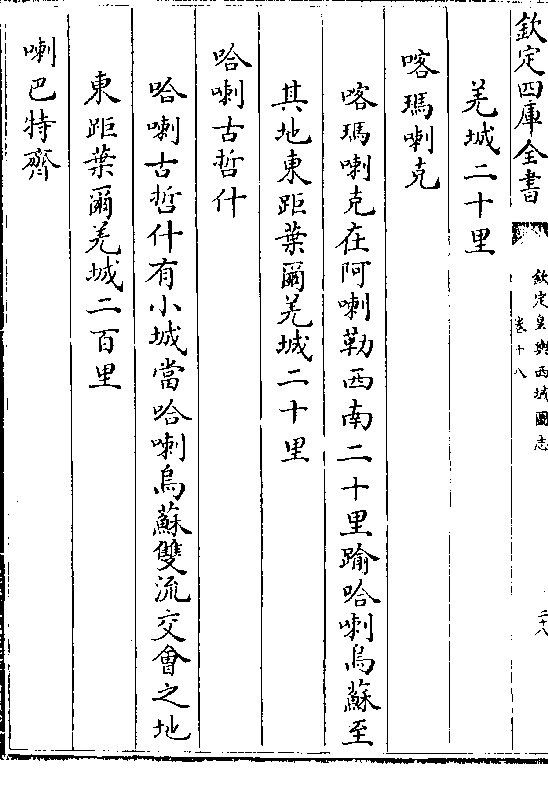 欽定四庫全書
欽定皇輿西域圖志
卷十八
二十八
羌城二十里
喀瑪喇克
喀瑪喇克在阿喇勒西南二十里踰哈喇烏蘇至
其地東距葉爾羌城二十里
哈喇古哲什
哈喇古哲什有小城當哈喇烏蘇雙流交會之地
東距葉爾羌城二百里
喇巴特齊